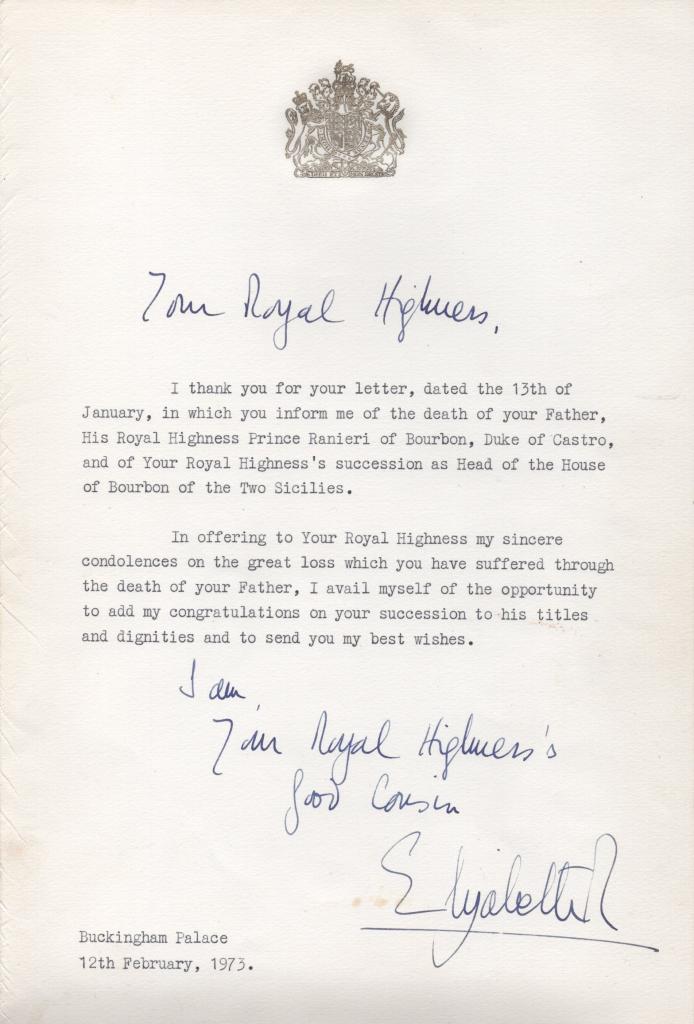 Your Royal Highness,
I thank you for your letter, dated the 13th of
January, in which you inform me of the death of your Father,
His Royal Highness Prince Ranieri of Bourbon, Duke of Castro,
and of Your Royal Highness's succession as Head of the House
of Bourbon of the Two Sicilies.
In offering to Your Royal Highness my sincere
condolences on the great loss which you have suffered through
the death of your Father, I avail myself of the opportunity
to add my congratulations on your succession to his titles
and dignities and to send you my best wishes.
I am,
Your Royal Highness's
good Cousin
Elizabeth R
Buckingham Palace
12th February, 1973.